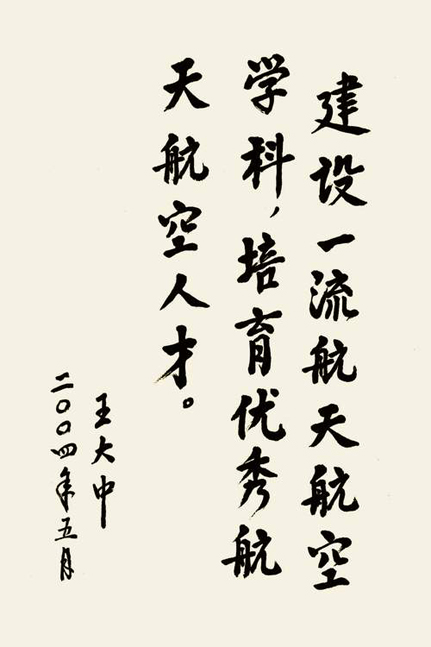 建设一流航天航空
学科，培育优秀航
天航空人才。
王大中
二〇〇四年五月